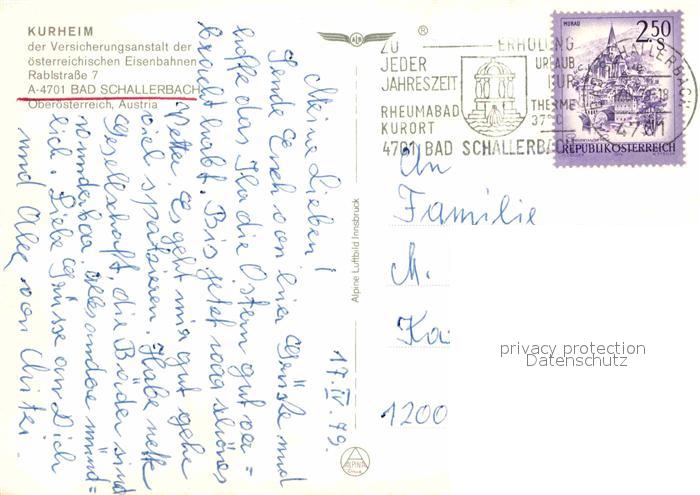 KURHEIM
der Versicherungsanstalt der
österreichischen Eisenbahnen
Rablstraße 7
A-4701 BAD SCHALLERBACH
Oberösterreich, Austria
Meine Lieben!
Sende Euch von hier Grüße und
hoffe das Ihr die Ostern gut ver=
bracht habt. Bis jetzt war schönes
Wetter. Es geht mir gut gehe
viel spatzieren. Habe nette
Gesellschaft, die Bäder sind
wunderbar, alles andere
lich. Liebe Grüsse an Dich
und Alle von
17.IV.79.
Alpine Luftbild Innsbruck
ALPINE
®
ZU
JEDER
JAHRESZEIT
RHEUMABAD
KURORT
4701 BAD SCHALLERBACH
ERHOLUNG
URLAUB
KUR
THERME
37°C
SCHALLERBACH
4701
MURAU
2.50
S
REPUBLIK ÖSTERREICH
An
Familie
M.
Ka
1200
privacy protection
Datenschutz